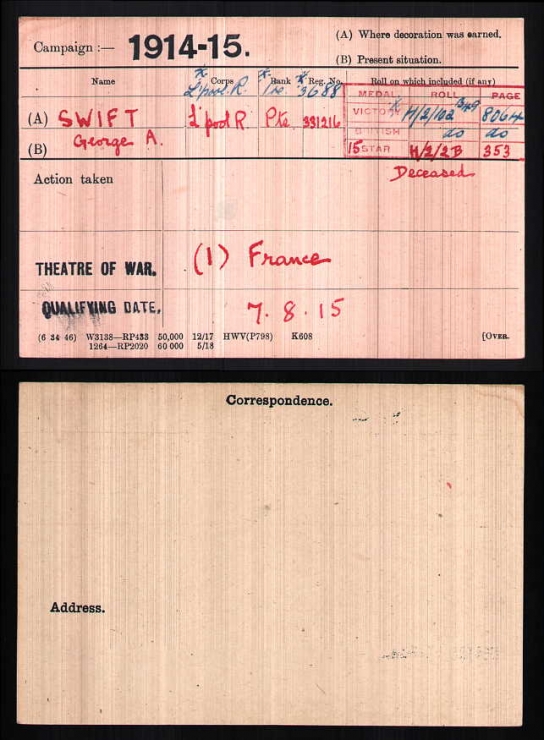 Campaign :— 1914-15.
(A) Where decoration was earned.
(B) Present situation.
Name Corps Rank Reg. No. Roll on which included (if any)
x L'pool R. x Pte. x 3688
MEDAL ROLL PAGE
(A) SWIFT L'pool R. Pte 331216
VICTORY x H/2/102 B49 8064
(B) George A.
BRITISH do do
15 STAR H/2/2B 353
Action taken
Deceased
THEATRE OF WAR. (1) France
QUALIFYING DATE. 7.8.15
(6 34 46) W3138—RP433 50,000 12/17 HWV(P798) K608 [OVER.
1264—RP2020 60 000 5/18
Correspondence.
Address.